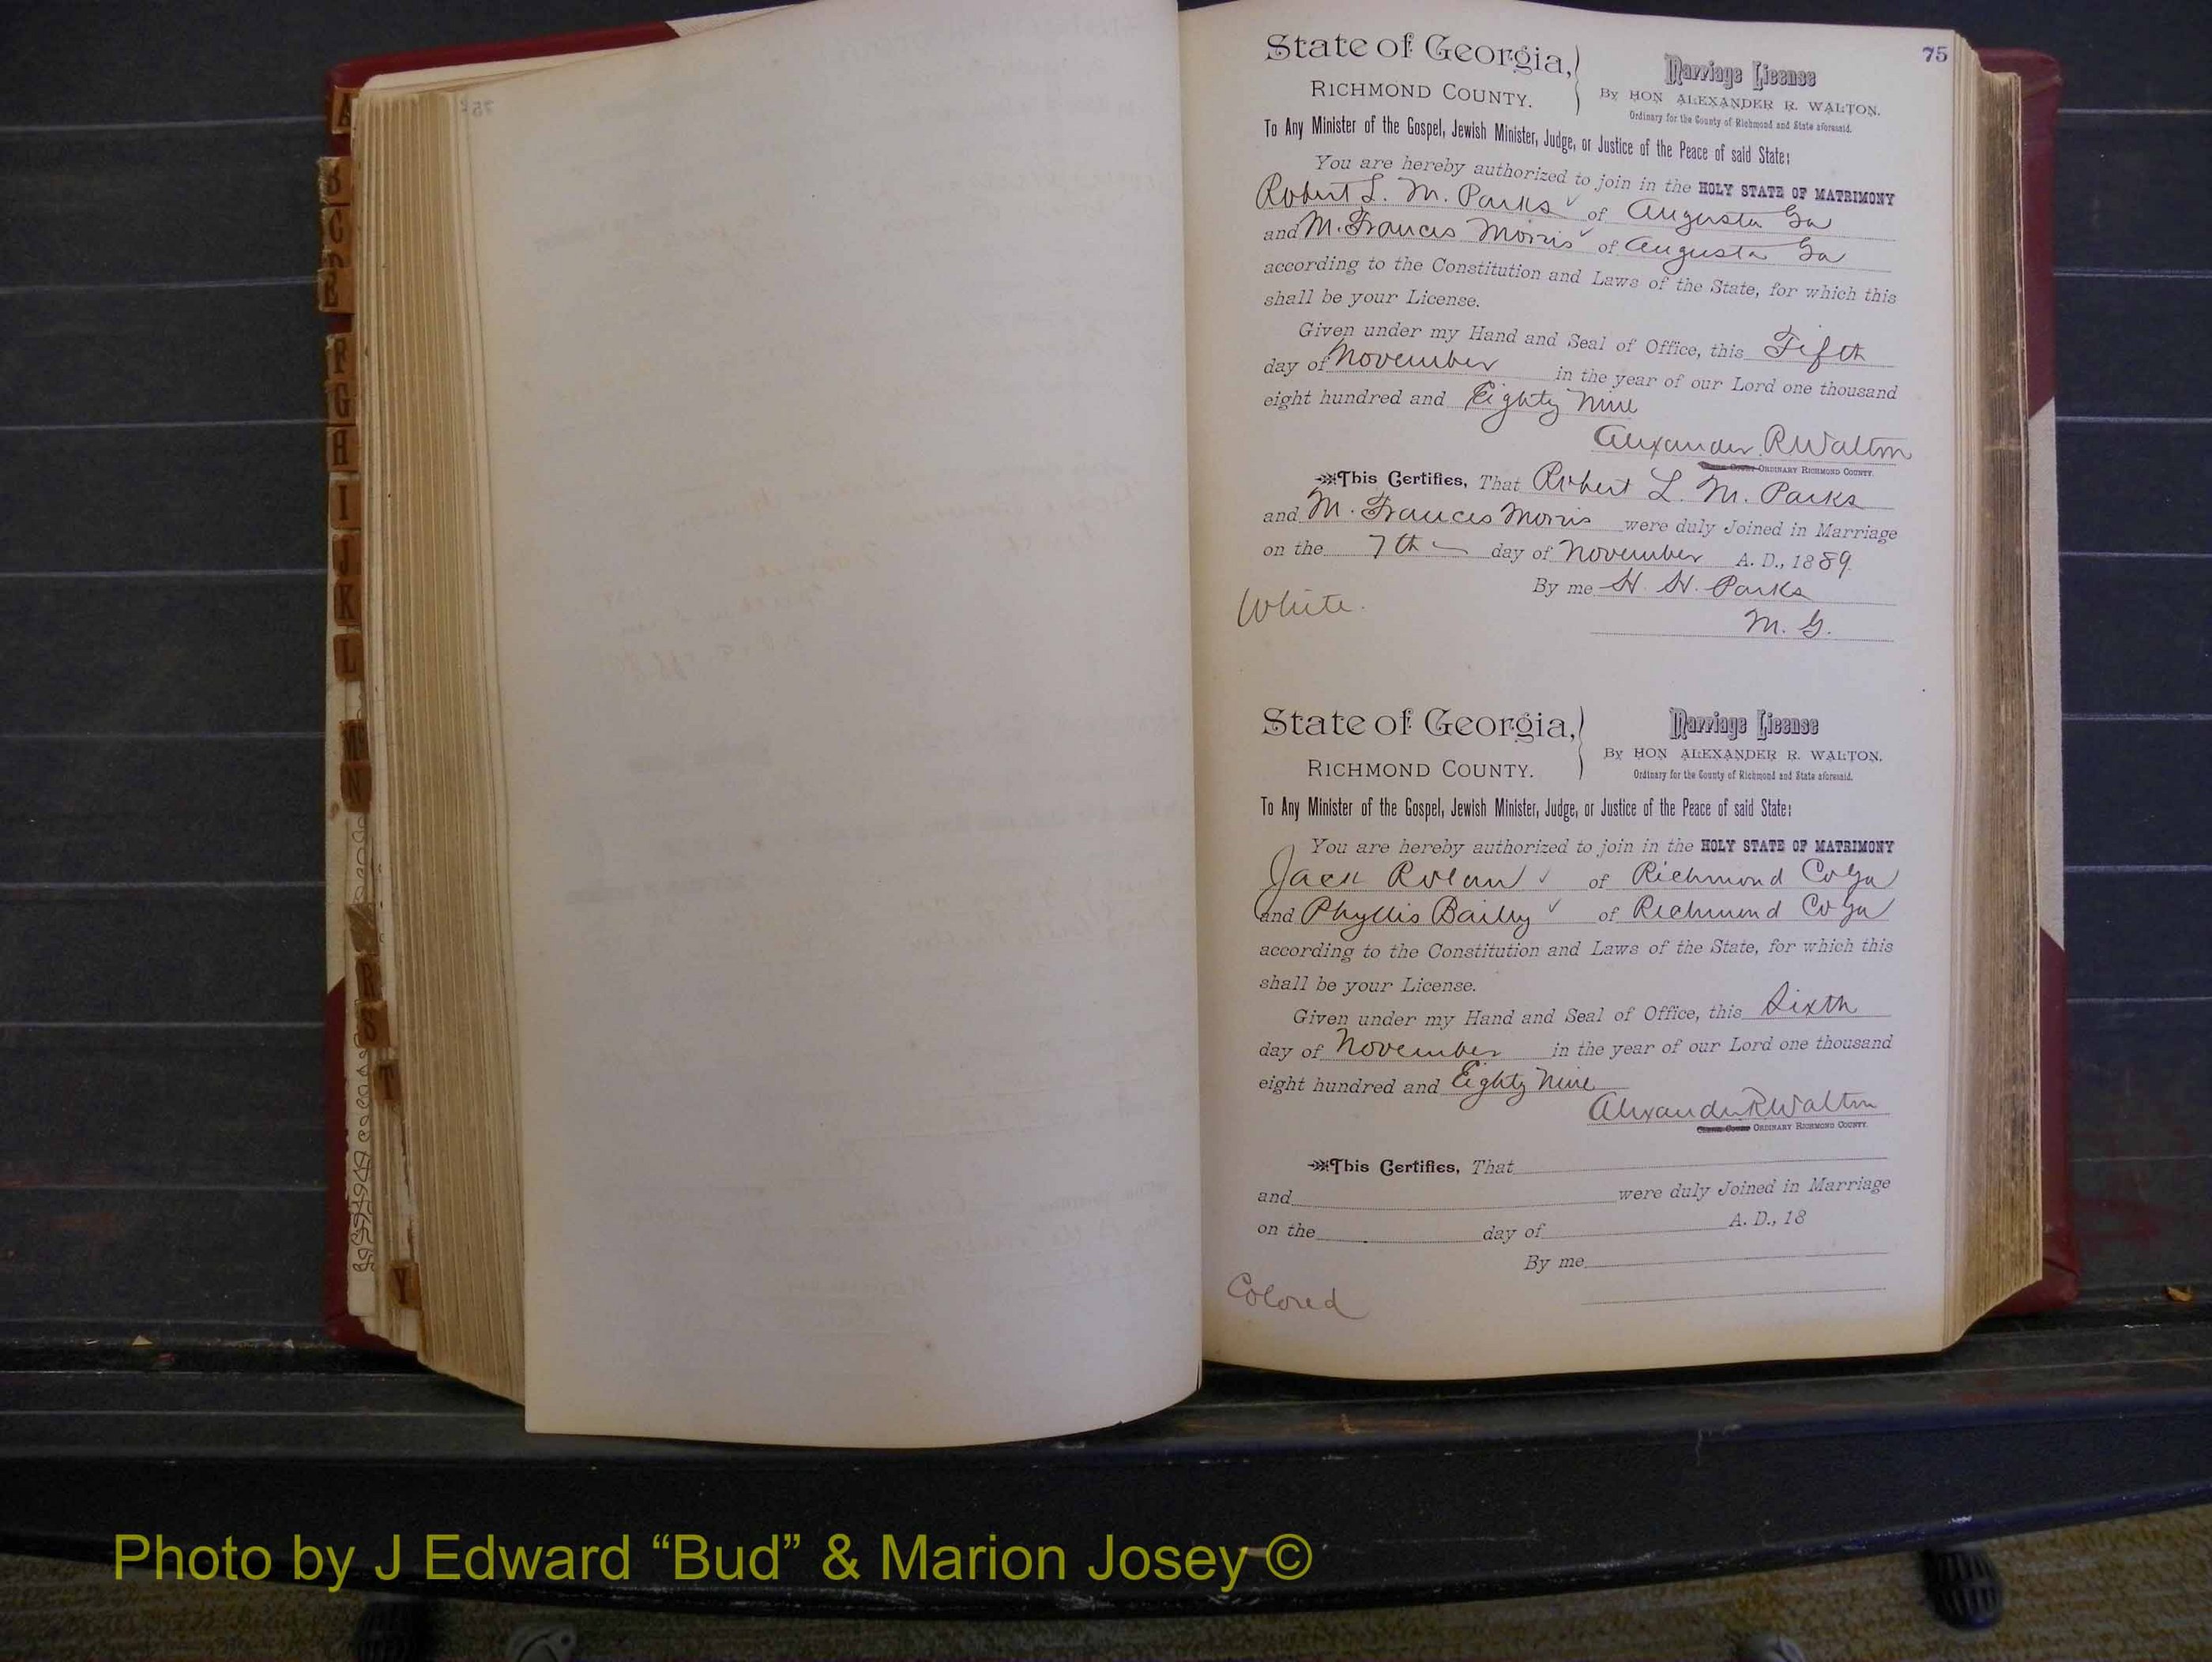 75
State of Georgia,
RICHMOND COUNTY.
Marriage License
By HON ALEXANDER R. WALTON.
Ordinary for the County of Richmond and State aforesaid.
To Any Minister of the Gospel, Jewish Minister, Judge, or Justice of the Peace of said State:
You are hereby authorized to join in the HOLY STATE OF MATRIMONY
Robert L. M. Parks ✓ of Augusta Ga
and M. Francis Morris ✓ of Augusta Ga
according to the Constitution and Laws of the State, for which this
shall be your License.
Given under my Hand and Seal of Office, this Fifth
day of November in the year of our Lord one thousand
eight hundred and Eighty Nine
Alexander R Walton
ORDINARY RICHMOND COUNTY.
This Certifies, That Robert L. M. Parks
and M. Frances Morris were duly Joined in Marriage
on the 7th day of November A. D., 1889.
By me H. H. Parks
White.
M. G.
State of Georgia,
RICHMOND COUNTY.
Marriage License
By HON ALEXANDER R. WALTON.
Ordinary for the County of Richmond and State aforesaid.
To Any Minister of the Gospel, Jewish Minister, Judge, or Justice of the Peace of said State:
You are hereby authorized to join in the HOLY STATE OF MATRIMONY
Jack ✓ of Richmond Co Ga
and Phyllis Bailey ✓ of Richmond Co Ga
according to the Constitution and Laws of the State, for which this
shall be your License.
Given under my Hand and Seal of Office, this Sixth
day of November in the year of our Lord one thousand
eight hundred and Eighty Nine
Alexander R Walton
ORDINARY RICHMOND COUNTY.
This Certifies, That
and were duly Joined in Marriage
on the day of A. D., 18
By me
Colored
A
B
C
F
G
H
I
J
K
L
N
R
S
T
Y
Photo by J Edward “Bud” & Marion Josey ©